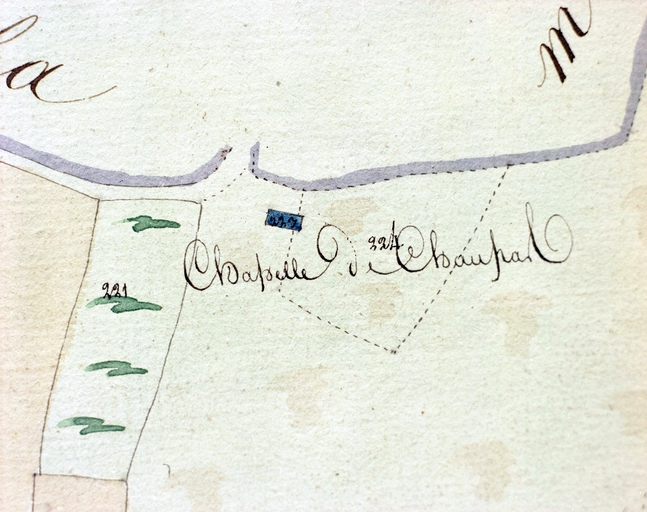 la
m
223
224
Chapelle de Chaupal
221